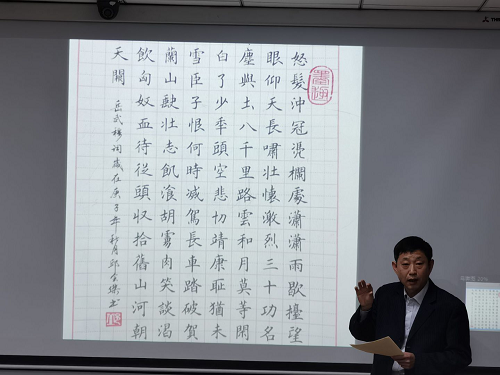 怒髮沖冠凭欄處瀟瀟雨歇擡望
眼仰天長嘯壯懷激烈三十功名
塵與土八千里路雲和月莫等閒
白了少年頭空悲切靖康恥猶未
雪臣子恨何時滅駕長車踏破賀
蘭山缺壯志飢飡胡虜肉笑談渴
飲匈奴血待從頭收拾舊山河朝
天闕
岳武穆詞歲在庚子年秋月邱書